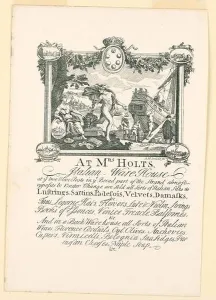 At Mrs HOLTS,
Italian Ware House
at ye two Olive Posts in ye Broad part of the Strand almost
opposite to Exeter Change are sold all Sorts of Italian Silks as
Lustrings, Sattins, Padesois, Velvets, Damasks,
Fans, Legorne Hats, Flowers, Lute & Violin Strings,
Books of Essences, Venice Treacle, Balsomes,
&c.
And in a Back Ware house all Sorts of Italian
Wines, Florence Cordials, Oyl, Olives, Anchovies,
Capers, Vermicelli, Bolognia Sausidges, Par-
mesan Cheeses, Naple Soap,
&c.